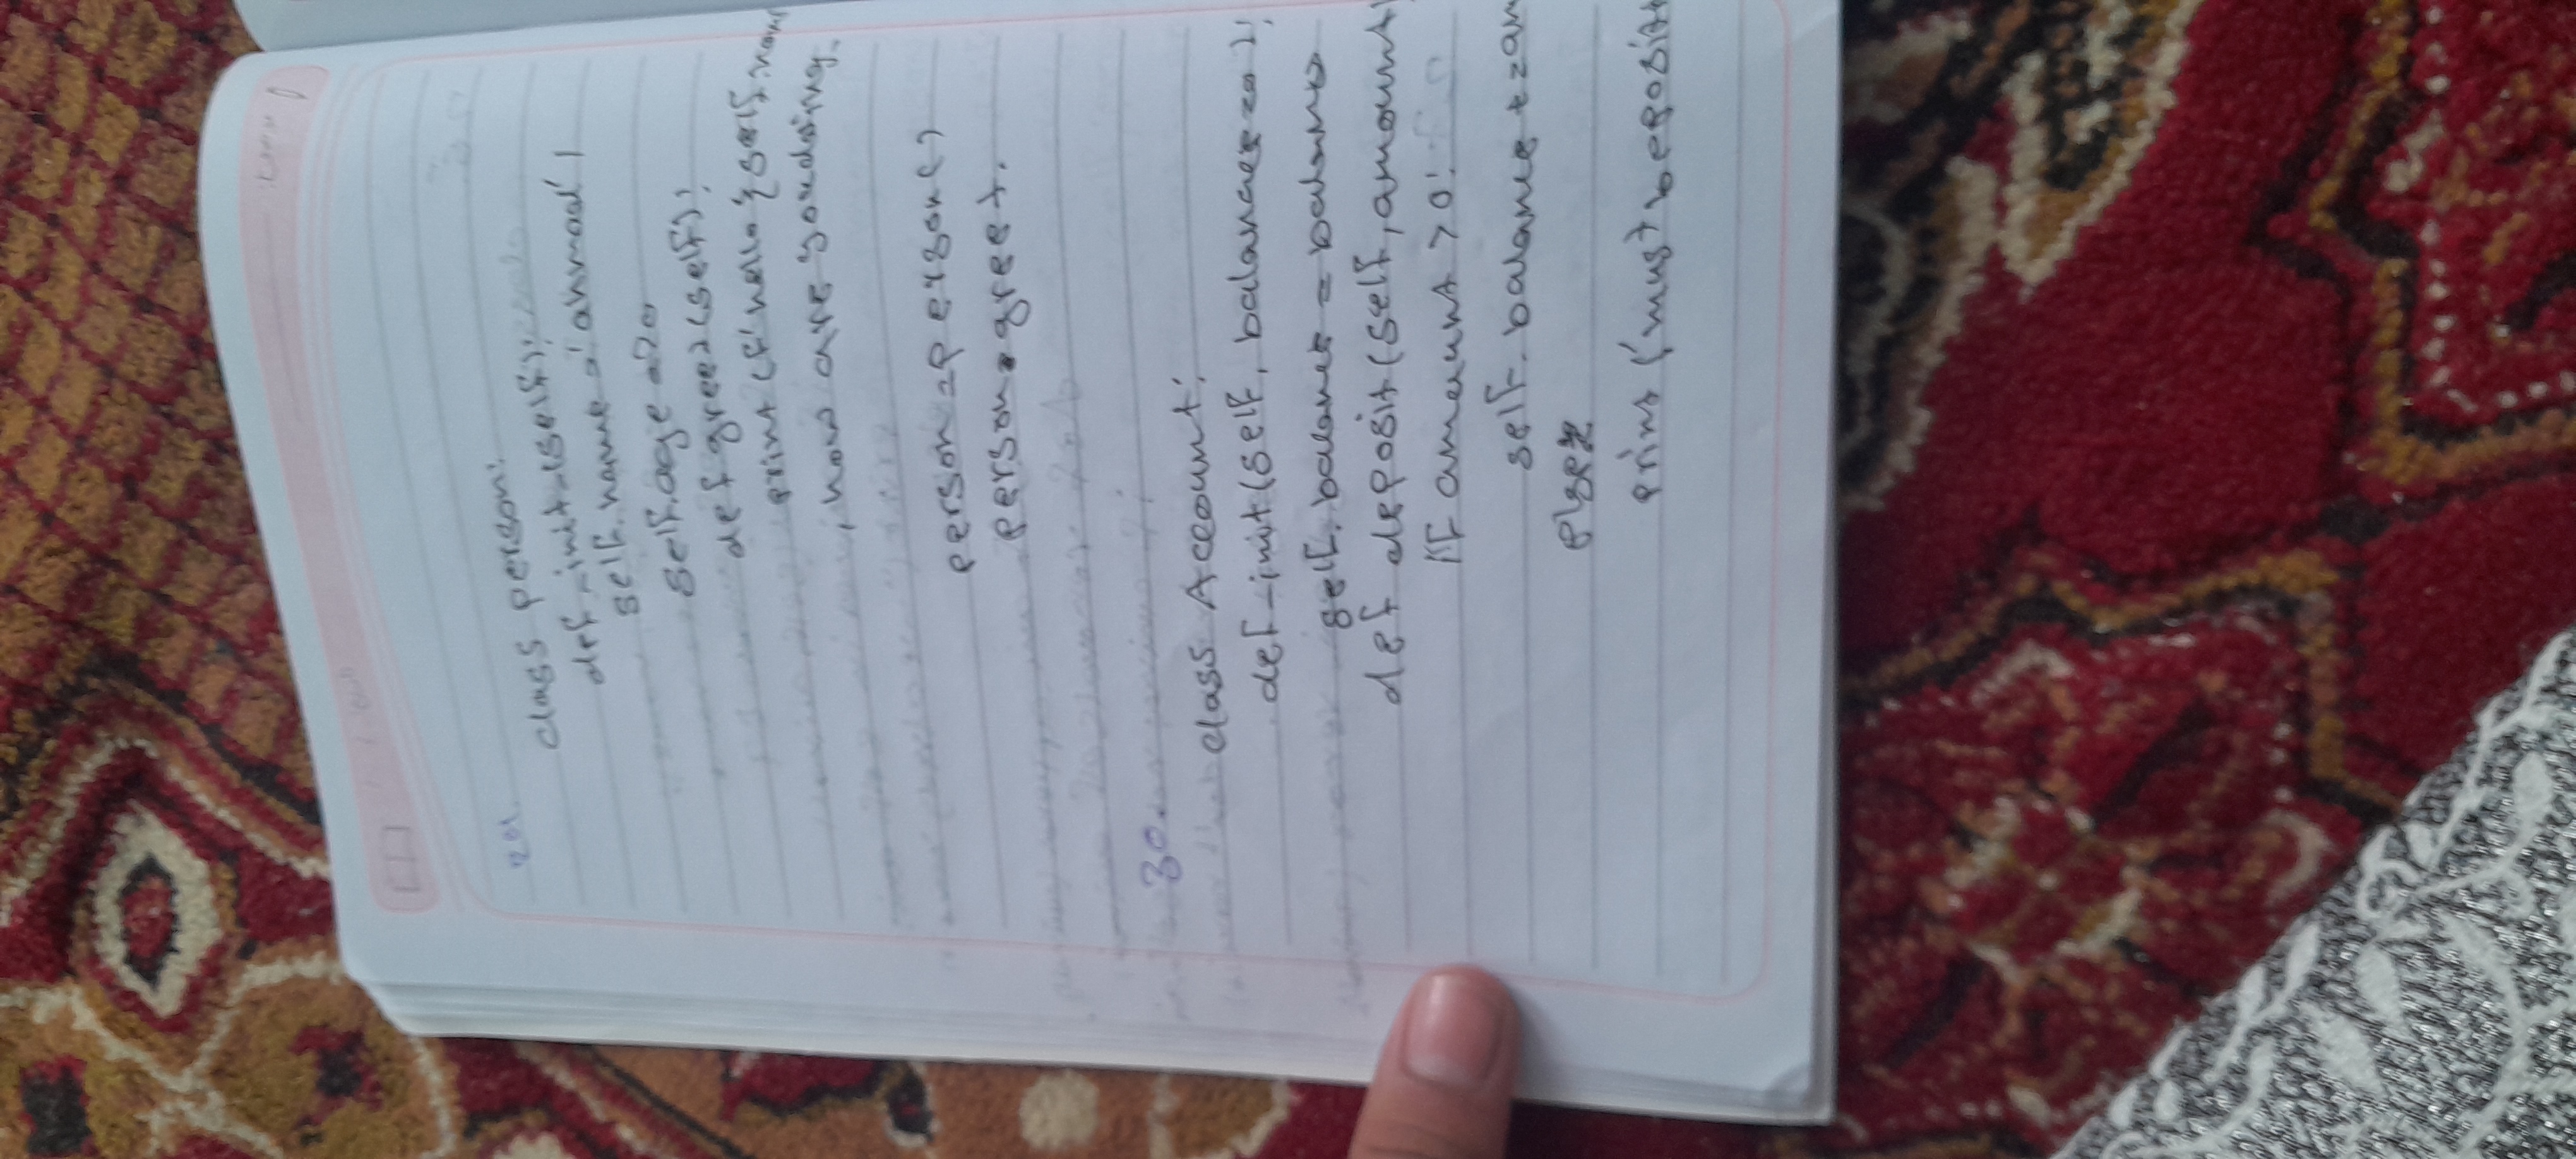 29.
class person:
def _init_(self):
self.name = 'ahmad'
self.age = 20
def greet(self):
print (f'hello {self.name
, how are you doing
person = person()
person.greet.
30.
class Account:
def _init(self, balance = 0):
self. balance = balance
def deposit (self, amount)
if amount > 0:
self. balance += am
else:
print ('must be